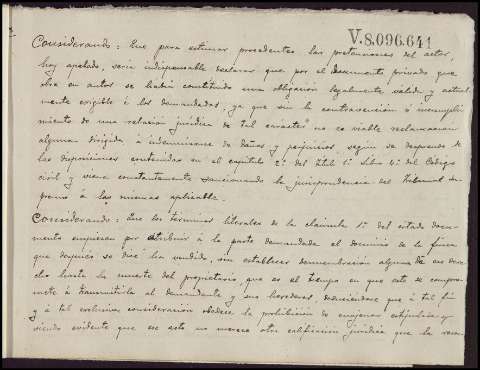 V.8,096,641
Considerando: Que para estimar procedentes las pretensiones del actor,
hoy apelado, seria indispensable declarar que por el documento privado que
obra en autos se habia constituido una obligación legalmente valida y actual-
mente exigible á los demandados, ya que sin la contravención ó incumpli-
miento de una relacion juridica de tal caracter no es viable reclamacion
alguna dirigida á indemnizarse de daños y perjuicios, según se desprende de
las disposiciones contenidas en el capitulo 2º del titulo 1º libro 4º del Código
civil y viene constantemente sancionando la jurisprudencia del Tribunal su-
premo á las mismas aplicable.
Considerando: Que los terminos literales de la clausula 1ª del citado docu-
mento empiezan por atribuir á la parte demandada el dominio de la finca
que después se dice ha vendido, sin establecer desmembración alguna de ese dere-
cho hasta la muerte del propietario, que es el tiempo en que este se compro-
mete á transmitirla al demandante y sus herederos, deduciendose que á tal fin
y á tal exclusiva consideración obedece la prohibición de enajenar estipulada y
siendo evidente que ese acto no merece otra calificación juridica que la